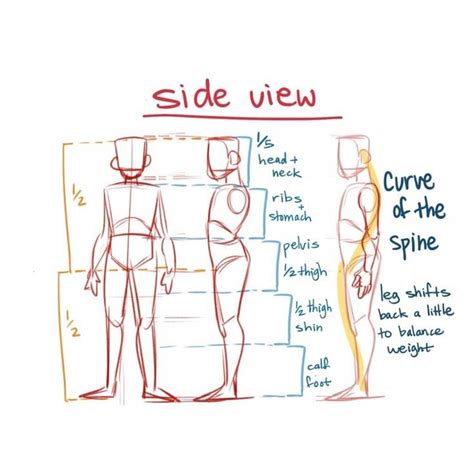 side view
1/5
head +
neck
ribs
+
stomach
pelvis
1/2 thigh
1/2 thigh
shin
calf
foot
1/2
1/2
Curve
of the
Spine
leg shifts
back a little
to balance
weight